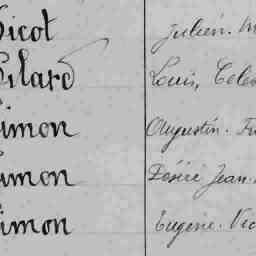 Picot Julien. M
Pilard Louis, Celes
Simon Augustin. Fr
Simon Désiré Jean.
Simon Eugène. Vic